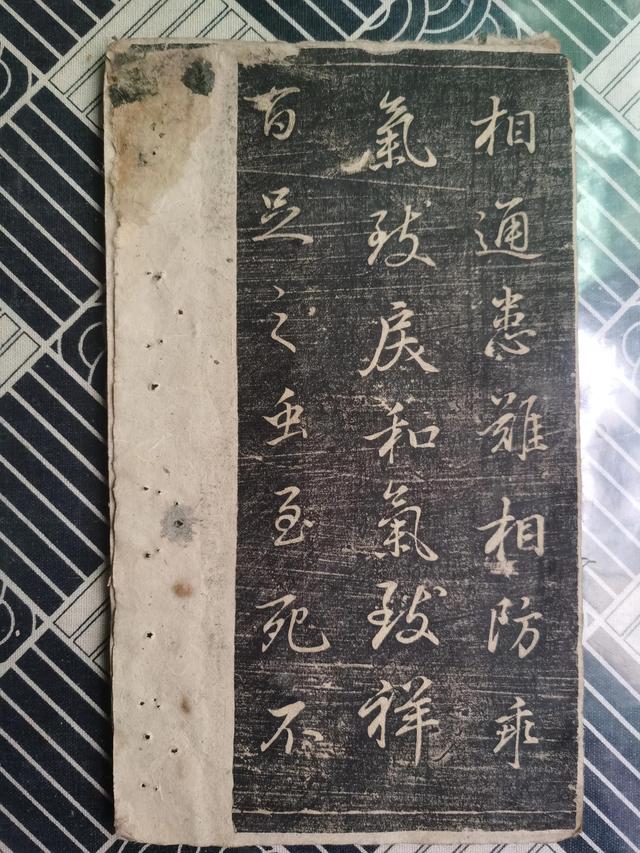 相通患難相防乖
氣致戾和氣致祥
百足之虫至死不